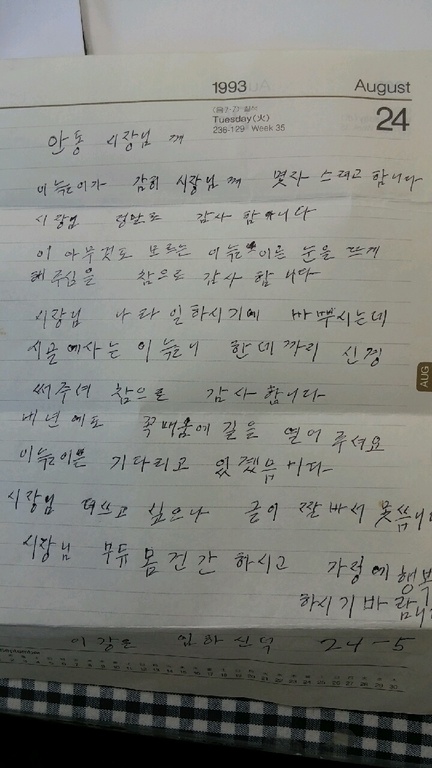 1993 August
(음7.7) 칠석
Tuesday(火) 24
236-129 Week 35
안동 시장님 께
이늙은이가 감히 시장님 께 몇자 스려고 합니다
시장님 정말로 감사 합니다
이 아무것도 모르는 이늙은이은 눈을 뜨게
해주심을 참으로 감사 합니다
시장님 나라 일하시기에 바뿌시는데
시골에사는 이 늙은니 한데 까지 신경
써주셔 참으로 감사합니다
내년에도 꼭배움에 길을 열어 주셔요
이늙이는 기다리고 있겠습니다
시장님 더쓰고 싶으나 글이 짤바서 못씁니
시장님 부듀 몸건간 하시고 가정에 행복
하시기바람니
AUG
이강로 임하신덕 24-5